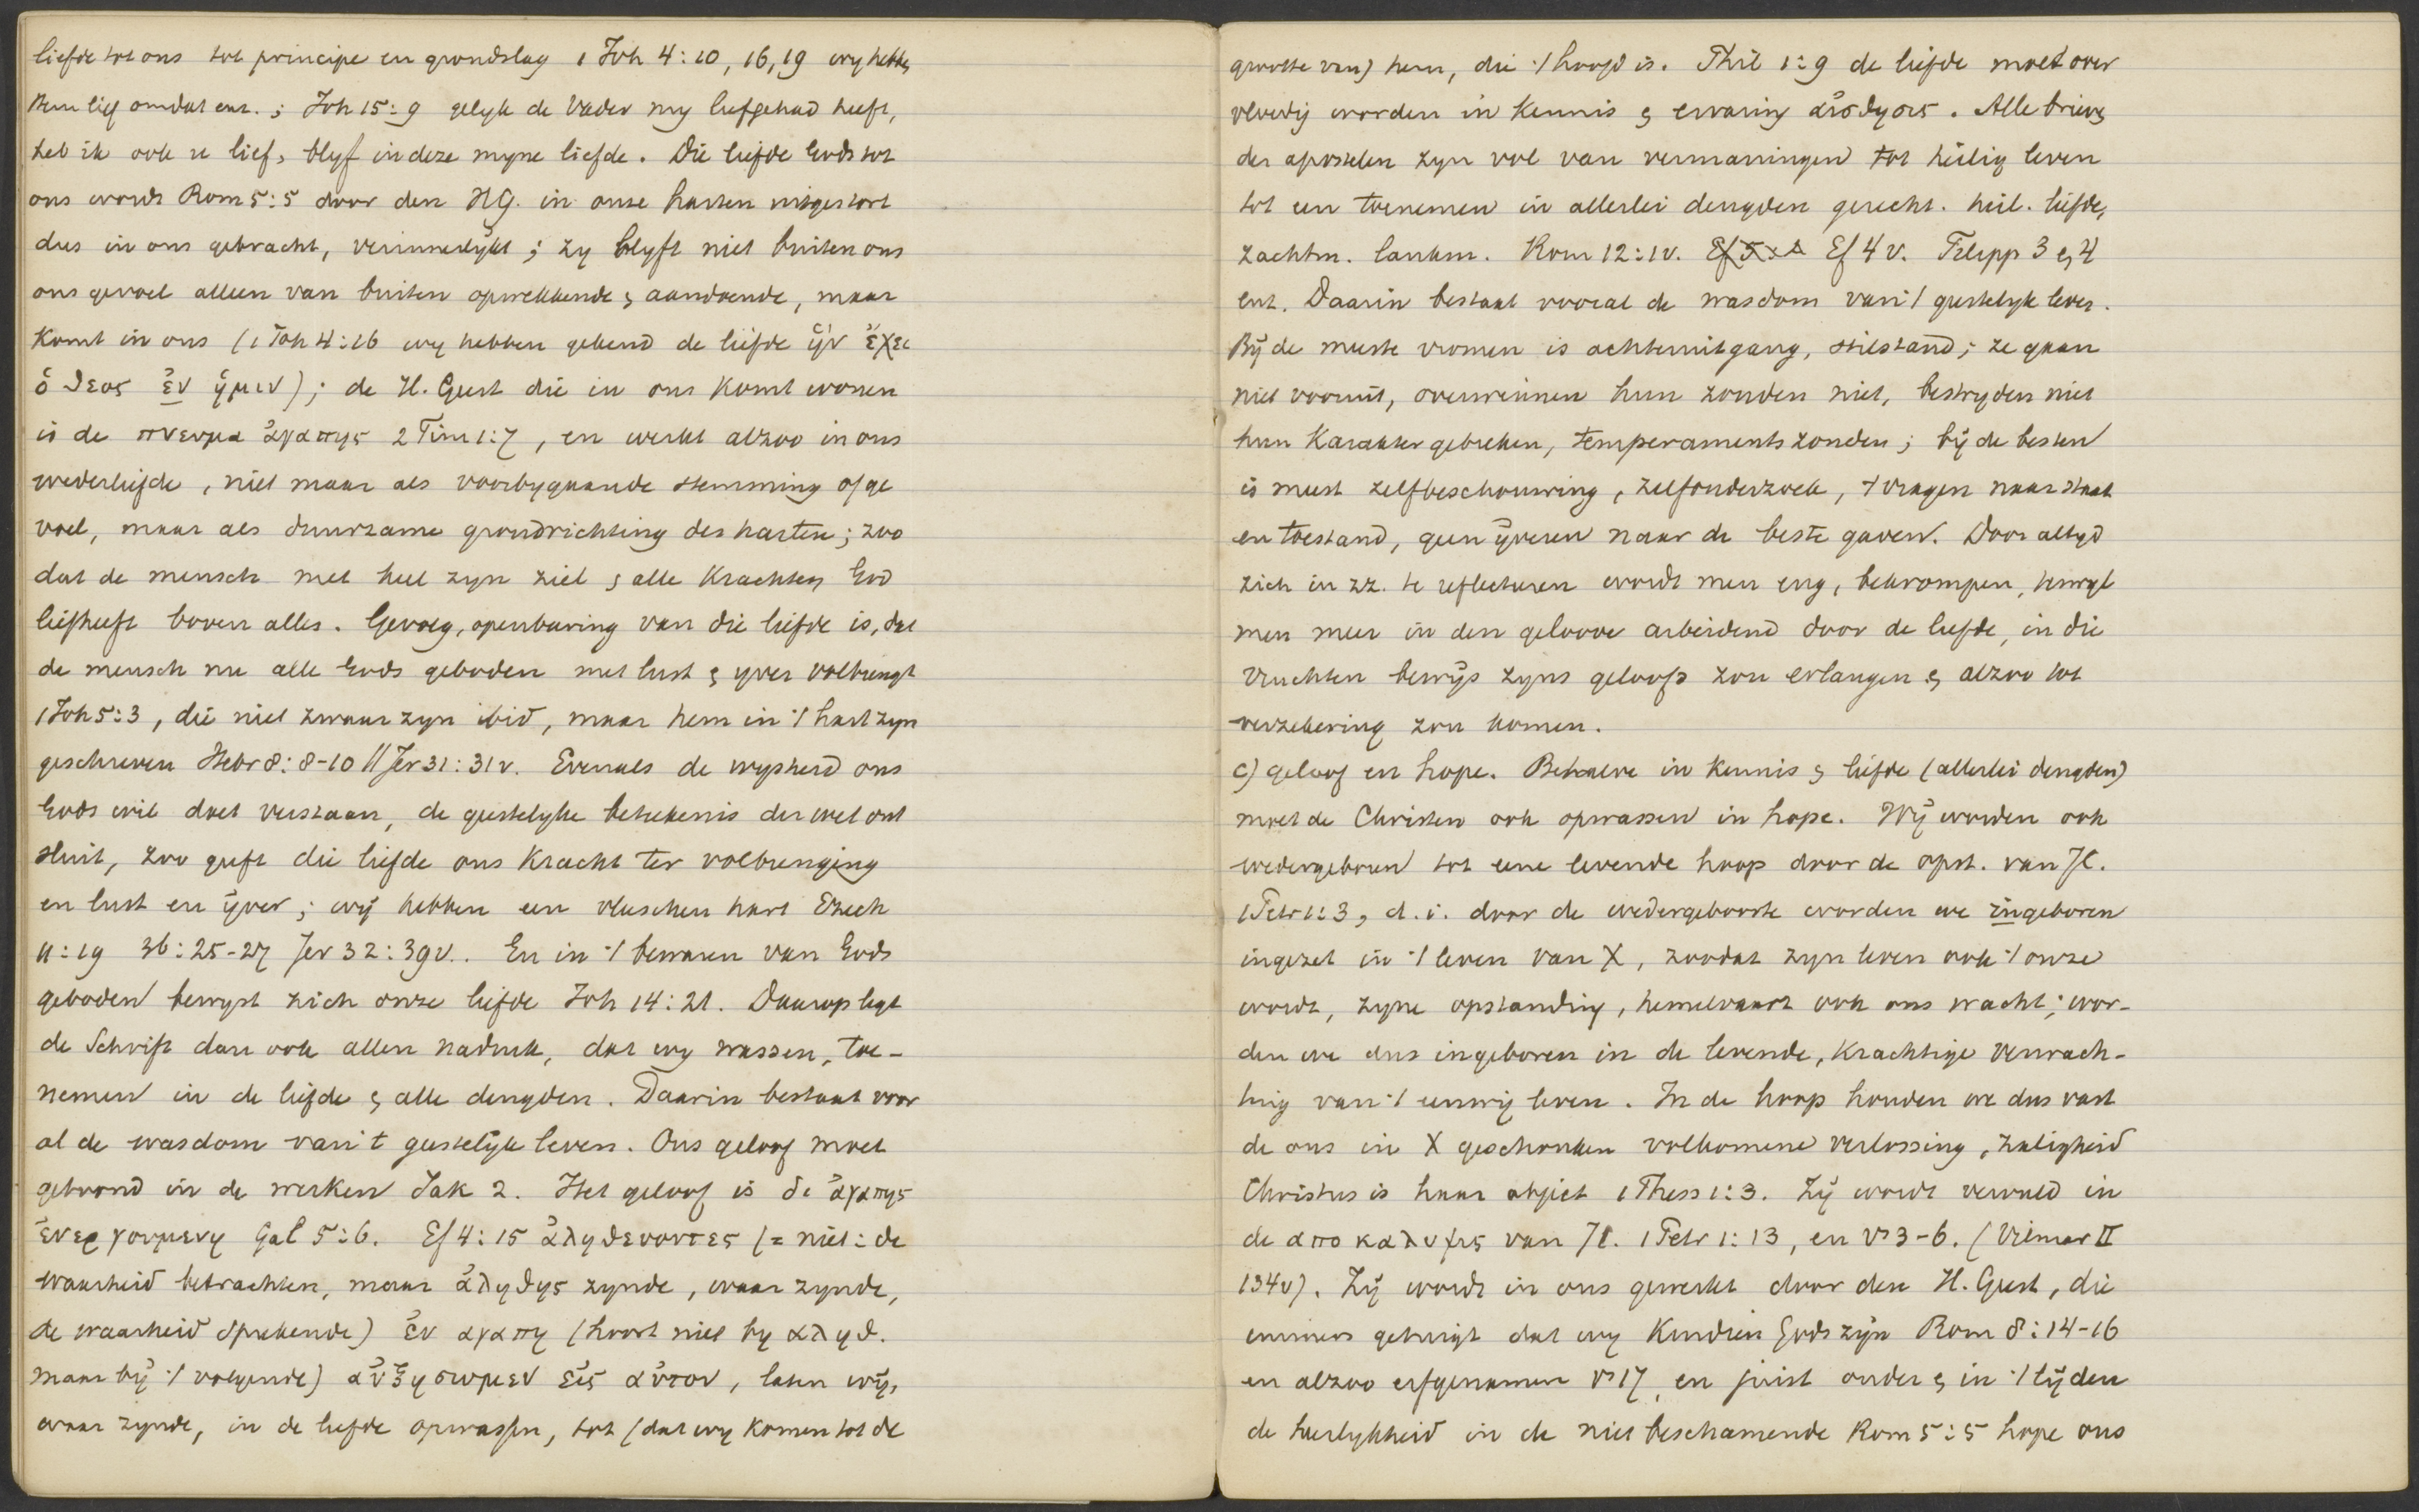 liefde tot ons tot principe en grondslag 1 Joh 4:10, 16, 19 wy hebben
Hem lief omdat enz.; Joh 15:9 gelyk de Vader my liefgehad heeft,
heb ik ook u lief, blyf in deze myne liefde. Die liefde Gods tot
ons wordt Rom 5:5 door den HG. in onze harten uitgestort
dus in ons gebracht, verinnerlykt; zy blyft niet buiten ons
ons gevoel alleen van buiten opwekkende & aandoende, maar
komt in ons (1 Joh 4:16 wy hebben gekend de liefde ἡν ἐχει
ὁ θεος ἐν ἡμιν); de H. Geest die in ons komt wonen
is de πνευμα ἀγαπης 2 Tim 1:7, en werkt alzoo in ons
wederliefde, niet maar als voorbygaande stemming of ge
voel, maar als duurzame grondrichting des harten; zoo
dat de mensch met heel zyn ziel & alle krachten God
liefheeft boven alles. Gevolg, openbaring van die liefde is, dat
de mensch nu alle Gods geboden met lust & yver volbrengt
1 Joh 5:3, die niet zwaar zyn ibid, maar hem in 't hart zyn
geschreven Hebr 8:8-10 // Jer 31:31v. Evenals de wysheid ons
Gods wil doet verstaan, de geestelyke beteekenis der wet ont
sluit, zoo geeft die liefde ons kracht ter volbrenging
en lust en ÿver; wÿ hebben een vleeschen hart Ezech
11:19 36:25-27 Jer 32:39v.. En in 't bewaren van Gods
geboden bewyst zich onze liefde Joh 14:21. Daarop legt
de Schrift dan ook allen nadruk, dat wy wassen, toe-
nemen in de liefde & alle deugden. Daarin bestaat voor
al de wasdom van 't geestelÿk leven. Ons geloof moet
getoond in de werken Jak 2. Het geloof is δι ἀγαπης
ἐνεργουμενη Gal 5:6. Ef 4:15 ἀληθευοντες (= niet: de
waarheid betrachten, maar ἀληθης zynde, waar zynde,
de waarheid sprekende) ἐν αγαπη (hoort niet by αληθ.
maar bÿ 't volgende) αὐξησωμεν εἰς αὐτον, laten wÿ,
waar zynde, in de liefde opwassen, tot (dat wy komen tot de
grootte van) hem, die 't hoofd is. Phil 1:9 de liefde moet over
vloedig worden in kennis & ervaring αἰσθησις. Alle brieven
der apostelen zyn vol van vermaningen tot heilig leven
tot een toenemen in allerlei deugden gerecht. heil. liefde,
zachtm. lankm. Rom 12:1v. Ef 4v. Filipp 3 & 4
enz. Daarin bestaat vooral de wasdom van 't geestelyk leven.
Bÿ de meeste vromen is achteruitgang, stilstand; ze gaan
niet vooruit, overwinnen hun zonden niet, bestryden niet
hun karaktergebreken, temperamentszonden; bÿ de besten
is meest zelfbeschouwing, zelfonderzoek, 't vragen naar staat
en toestand, geen ÿveren naar de beste gaven. Door altyd
zich in zz. te reflecteeren wordt men eng, bekrompen, terwyl
men meer in den geloove arbeidend door de liefde, in die
vruchten bewÿs zyns geloofs zou erlangen & alzoo tot
verzekering zou komen.
c) geloof en hope. Behalve in kennis & liefde (allerlei deugden)
moet de Christen ook opwassen in hope. Wÿ worden ook
wedergeboren tot eene levende hoop door de opst. van JC.
1 Petr 1:3, d.i. door de wedergeboorte worden we ingeboren
ingezet in 't leven van X, zoodat zyn leven ook 't onze
wordt, zyne opstanding, hemelvaart ook ons wacht; wor-
den we dus ingeboren in de levende, krachtige verwach-
ting van 't eeuwig leven. In de hoop houden we dus vast
de ons in X geschonken volkomene verlossing, zaligheid
Christus is haar object 1 Thess 1:3. Zÿ wordt vervuld in
de αποκαλυψις van JC. 1 Petr 1:13, en vs 3-6. (Vilmar II
134v). Zÿ wordt in ons gewerkt door den H. Geest, die
immers getuigt dat wy kinderen Gods zÿn Rom 8:14-16
en alzoo erfgenamen vs 17, en juist onder & in 't lÿden
de heerlykheid in de niet beschamende Rom 5:5 hope ons